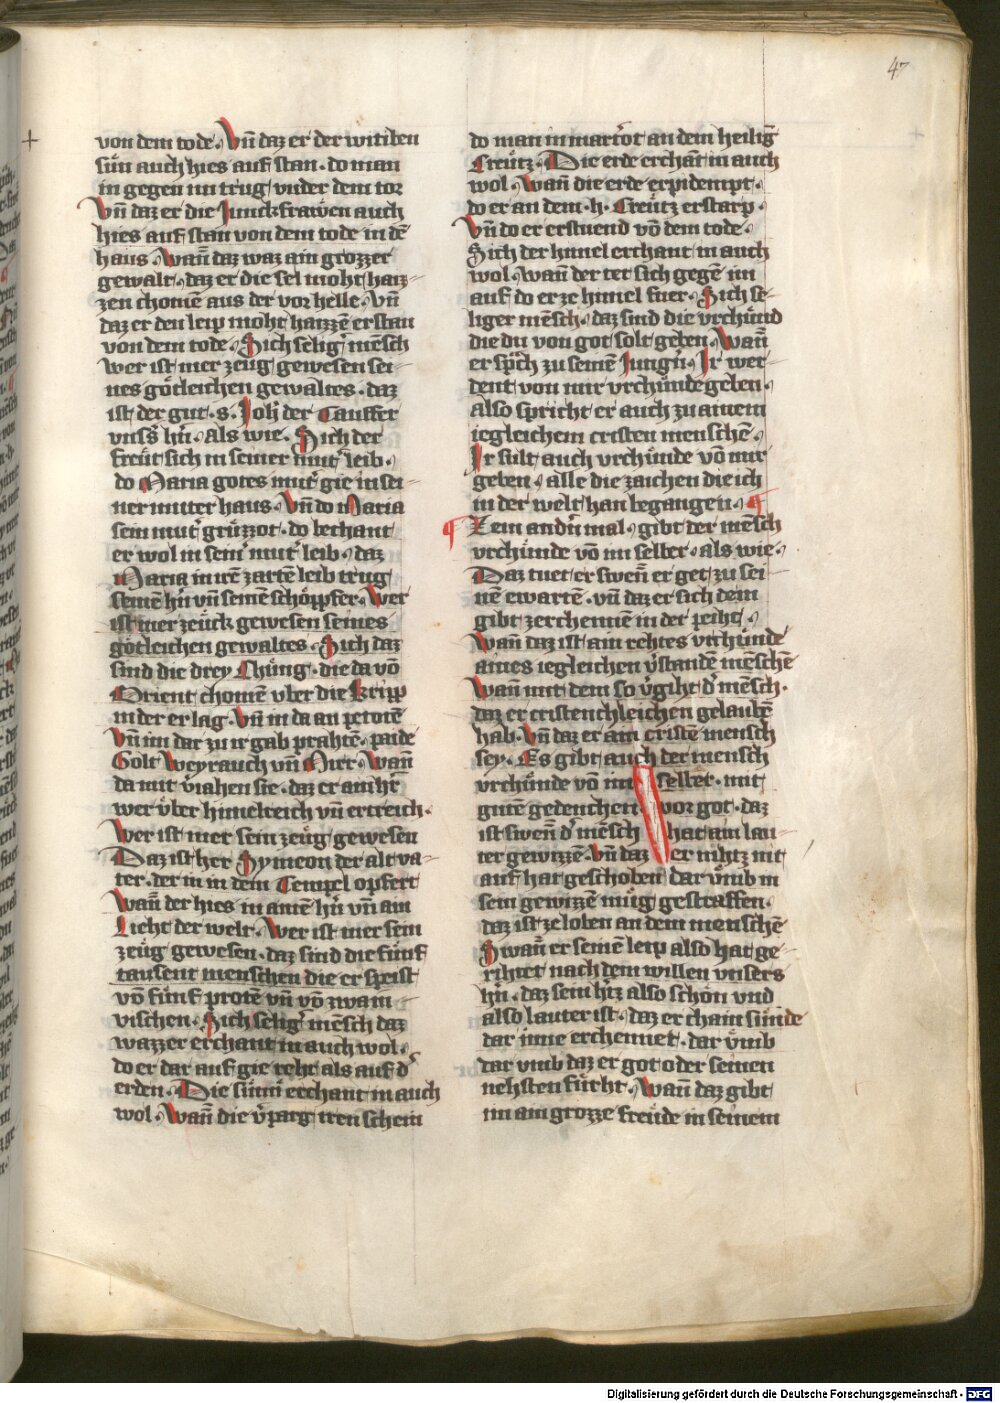 47
von dem tode. Vn̄ daz er der witiben
sün auch hies auf stan. do man
in gegen im trug vnder dem tor
Vn̄ daz er die Junckfrawen auch
hies auf stan von dem tode in dē
haus. Wan̄ daz waz ain grozzer
gewalt. daz er die sel moht haiz-
zen chomē aus der vorhelle. Vn̄
daz er den leip moht haizzē erstan
von dem tode. Sich selig mēsch
wer ist mer zeüg gewesen sei-
nes götleichen gewaltes. daz
ist der gut .s. Joh̄ der Tauffer
vnss̄ hn̄. als wie. Sich der
freüt sich in seiner mut̄ leib.
do Maria gotes mut̄ gie in sei-
ner muter haus. Vn̄ do Maria
sein mut̄ grüzzot. do bechant
er wol in sein̄ mut̄ leib. daz
Maria in irē zartē leib trug
seinē hn̄ vn̄ seinē schöppfer. Wer
ist mer zeück gewesen seines
götleichen gewaltes. Sich daz
sind die drey Chüng. die da vō
Orient chomē vber die kripp
in der er lag. Vn̄ in da an petotē
Vn̄ im dar zu ir gab prahtē. paide
Golt Weyrauch vn̄ Mirr. Wan̄
da mit v̄iahen sie. daz er ain hr̄
wer v̈ber himelreich vn̄ ertreich.
Wer ist mer sein zeüg gewesen
Daz ist her Symeon der alt va-
ter. der in in dem Tempel opfert
Wan̄ der hies in ainē hn̄ vn̄ ain
Licht der welt. Wer ist mer sein
zeüg gewesen. daz sind die fünf
tausent menschen die er speist
vō fünf protē vn̄ vō zwain
vischen. Sich seliḡ mēsch daz
wazzer erchant in auch wol.
do er dar auf gie reht als auf d̄
erden. Die sunn̄ erchant in auch
wol. Wan̄ die v̄parg iren schein
do man in martrot an dem heiliḡ
Creütz. Die erde erchāt in auch
wol. Wan̄ die erde erpidempt.
do er an dem .h. Creütz erstarp.
Vn̄ do er erstuend vō dem tode.
Sich der himel erchant in auch
wol. Wan̄ der tet sich gegē im
auf do er ze himel fuer. Sich se-
liger mēsch. daz sind die vrchünd
die du von got solt geben. Wan̄
er sp̄ch zu seinē Jungn̄. Ir wer-
dent von mir vrchünde geben.
also spricht er auch zu ainem
iegleichem cristen menschē.
Ir sult auch vrchünde vō mir
geben. alle die zaichen die ich
in der welt han begangen. ¶
¶ Zem andn̄ mal. gibt der mēsch
vrchünde vō im selber. als wie.
Daz tuet er swen̄ er get zu sei-
nē ewartē. vn̄ daz er sich dem
gibt zerchennē in der peiht.
Wan̄ daz ist ain rehtes vrchünde
aines iegleichen v̄standē mēschē
Wan̄ mit dem so v̄giht d̄ mēsch.
daz er cristenchleichen gelaubē
hab. Vn̄ daz er ain cristē mensch
sey. Es gibt auch der mensch
vrchünde vō im selber. mit
gutē gedenchen vor got. daz
ist swen̄ d̄ mēsch hat ain lau-
ter gewizzē. Vn̄ daz er nihtz nit
auf hat geschoben dar v̈mb in
sein gewizzē müg gestraffen.
daz ist ze loben an dem menschē
Swan̄ er seinē leip also hat ge-
rihtet nach dem willen vnsers
hn̄. daz sein h̄tz also schön vnd
also lauter ist. daz er chain sünde
dar inne erchennet. dar v̈mb
dar vmb daz er got oder seinen
nehsten fürht. Wan̄ daz gibt
im ain grozze freüde in seinem
Digitalisierung gefördert durch die Deutsche Forschungsgemeinschaft - DFG